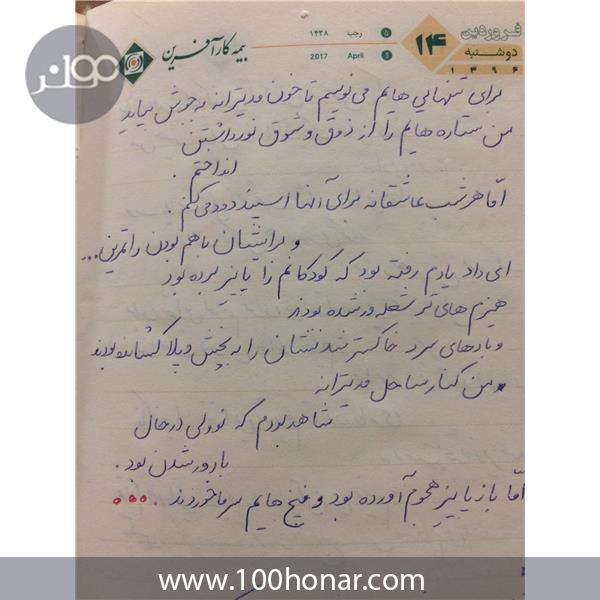 فروردین
۱۴
دوشنبه
۱۳۹۶
۵ رجب ۱۴۳۸
3 April 2017
بیمه کارآفرین
برای تنهایی هایم می نویسم تا خون مدیترانه به جوش بیاید
من ستاره هایم را از ذوق و شوق نور داشتن
انداختم .
امّا هر شب عاشقانه برای آنها اسپند دود می کنم .
و برایشان با هم بودن را تمرین...
ای داد یادم رفته بود که کودکانم را پاییز برده بود
هیزم های تر شعله ور شده بودند
و بادهای سرد خاکستر شدنشان را به پخش و پلا کشانده بودند
من کنار ساحل مدیترانه
شاهد بودم که نوولی در حال
بارور شدن بود .
امّا باز پاییز هجوم آورده بود و میخ هایم سرما خوردند . ...
www.100honar.com